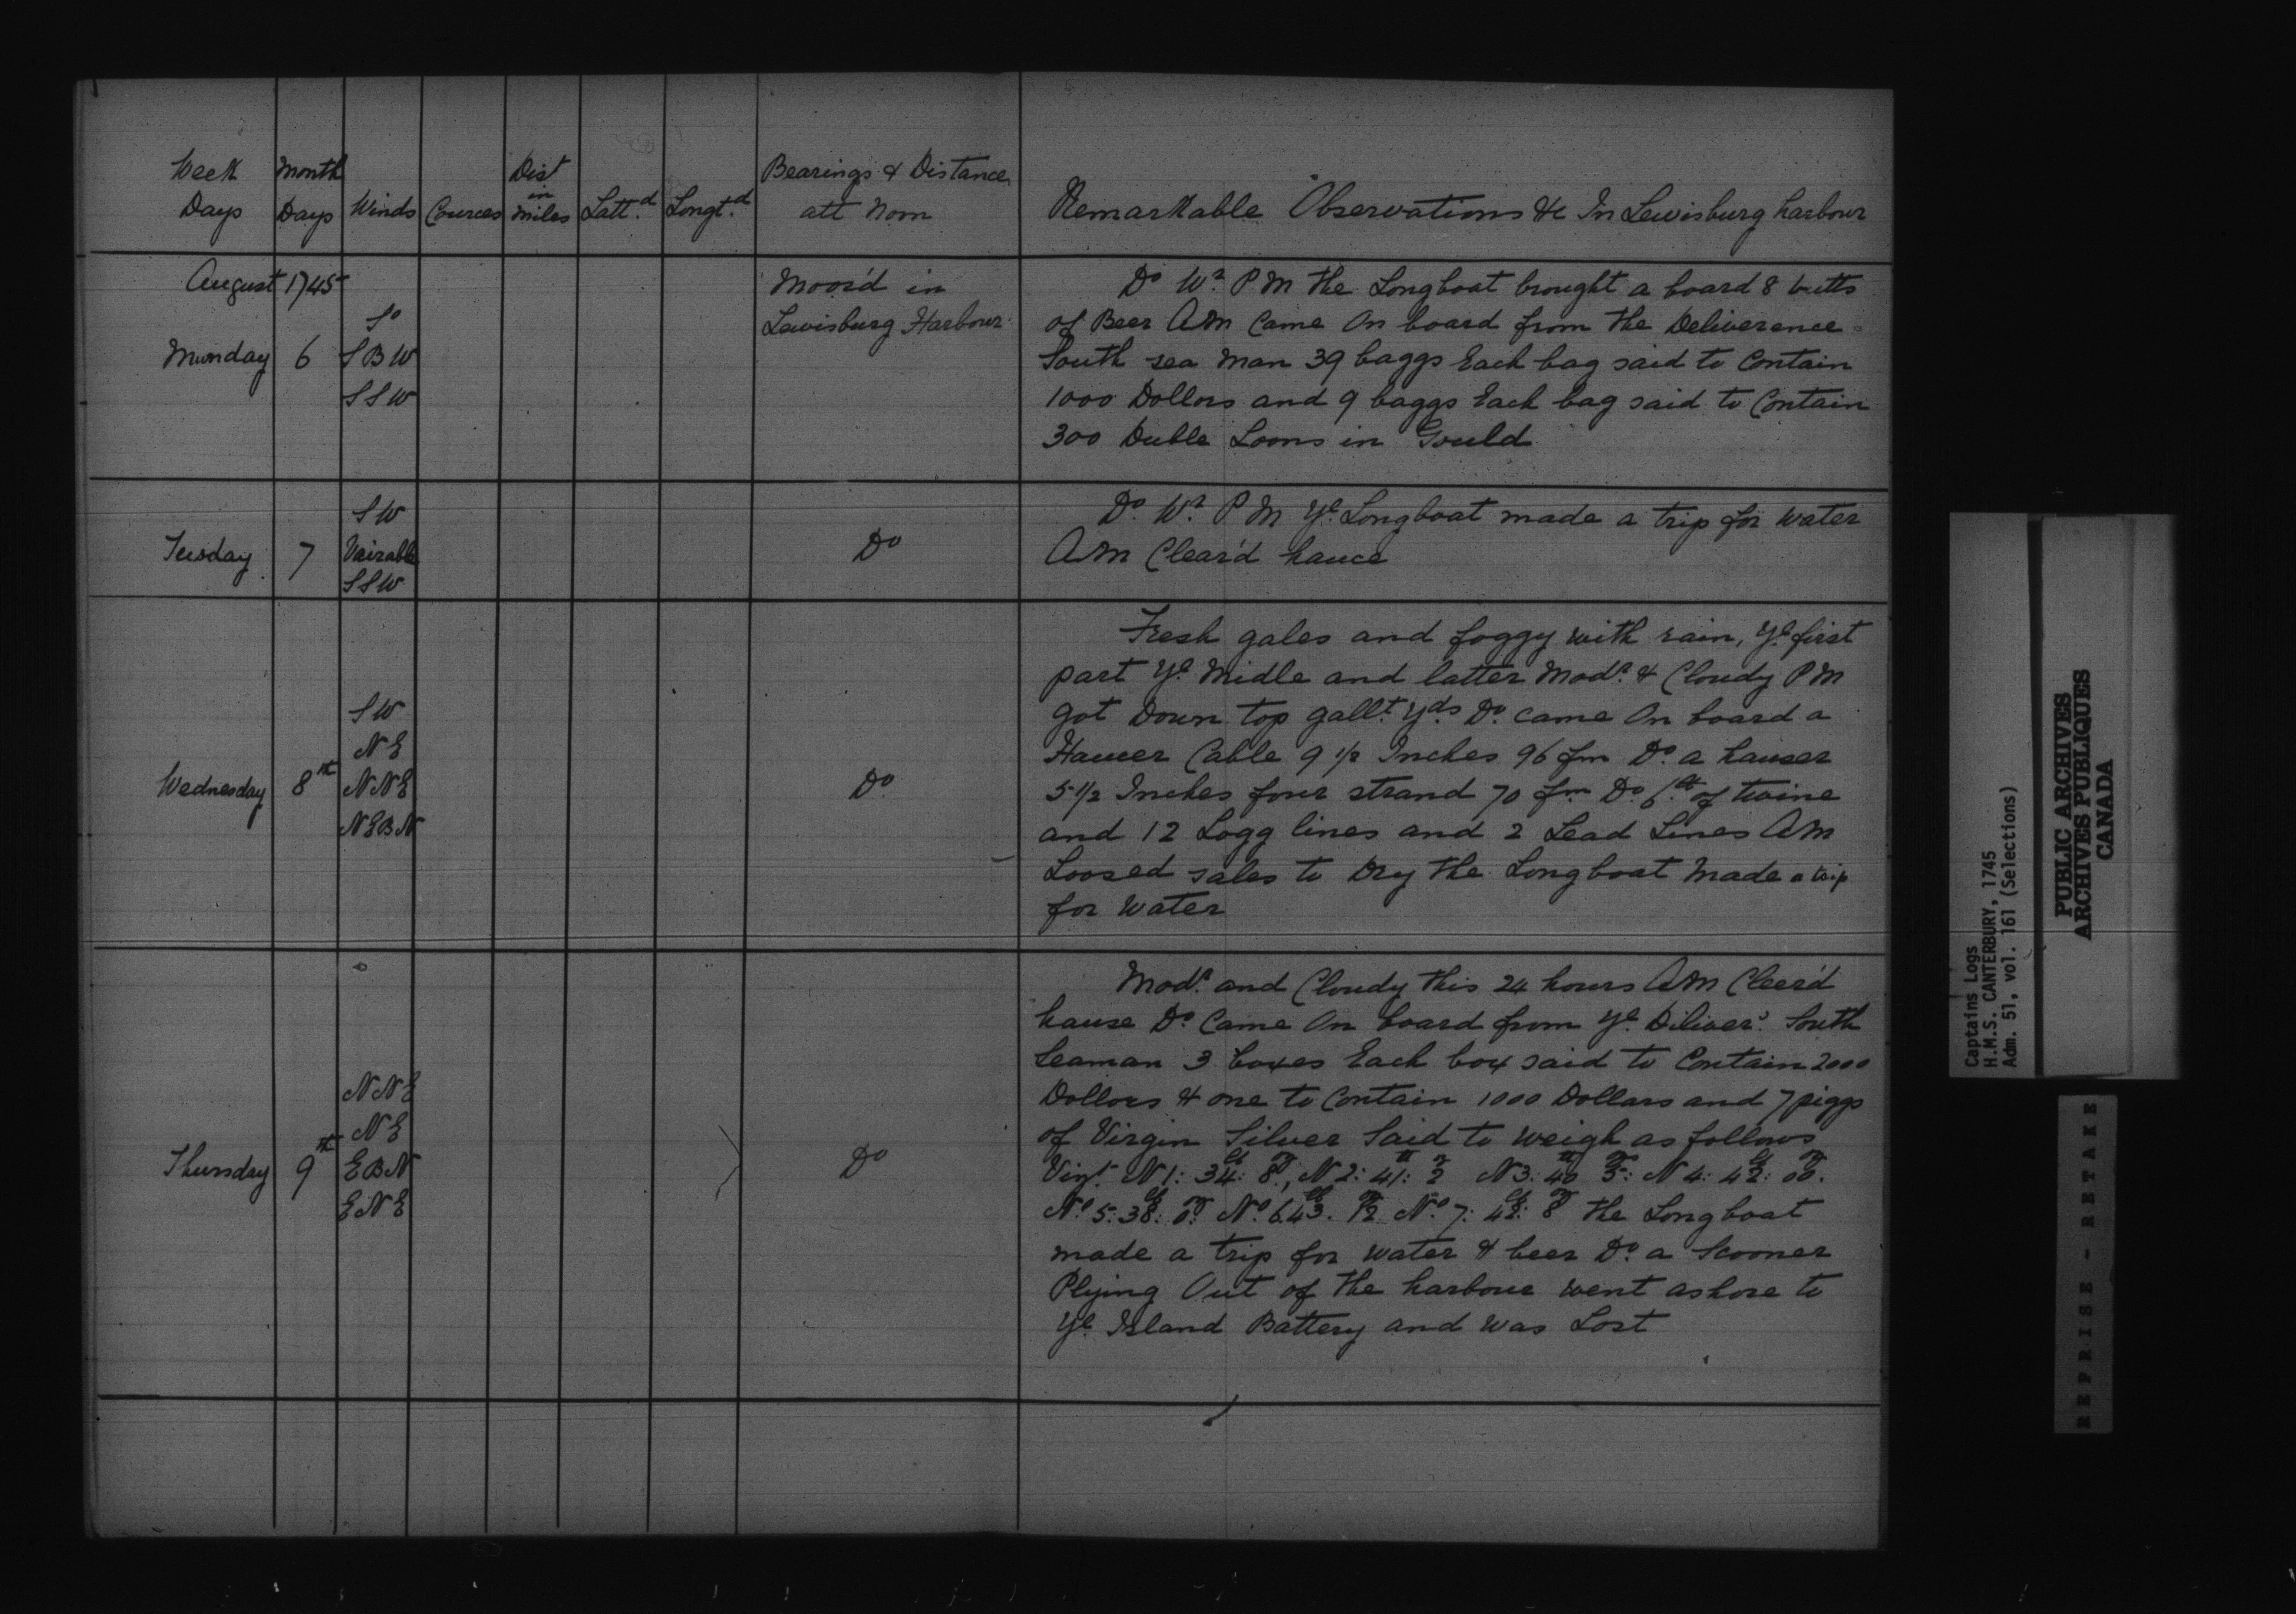 Week Days
Month Days
Winds
Cources
Dist in miles
Latt.d
Longt.d
Bearings & Distance att Noon
Remarkable Observations &c In Lewisburg harbour
August 1745
Munday 6
So
SBW
SSW
Moor'd in
Lewisburg Harbour
Do Wr. PM the Longboat brought a board 8 butts
of Beer AM Came On board from the Deliverence
South sea man 39 baggs Each bag said to Contain
1000 Dollors and 9 baggs Each bag said to Contain
300 Duble Loons in Gould
Tusday 7
SW
Vairable
SSW
Do
Do. Wr. PM Ye. Longboat made a trip for water
AM Clear'd hauce
Wednesday 8th
SW
NE
NNE
NEBN
Do.
Fresh gales and foggy with rain, Ye. first
part Ye. Midle and latter Modr. & Cloudy PM
got Down top gallt. Yds Do. came On board a
Hawer Cable 9 1/2 Inches 96 fm Do. a hauser
5-1/2 Inches four strand 70 fm Do. 6 lb of twine
and 12 Logg lines and 2 Lead Lines AM
Loosed sales to Dry the Longboat Made a trip
for water
Thursday 9th
NNE
NE
EBN
ENE
Do
Modr. and Cloudy this 24 hours AM Cleer'd
hause Do. Came On board from Ye. Diliver: South
Seaman 3 boxes Each box said to Contain 2000
Dollors & one to Contain 1000 Dollars and 7 piggs
of Virgin Silver Said to weigh as follows
Vizt. N 1: 34: 8, N 2: 41: 2 N 3: 40 5: N 4: 42: 00.
No 5: 38: 0: No. 6 43. 12 No. 7: 42: 8 the Longboat
made a trip for water & beer Do. a Scooner
Plying Out of the harbour went ashore to
Ye. Island Battery and was Lost
Captains Logs
H.M.S. CANTERBURY, 1745
Adm. 51, vol. 161 (Selections)
PUBLIC ARCHIVES
ARCHIVES PUBLIQUES
CANADA
REPRISE - RETAKE